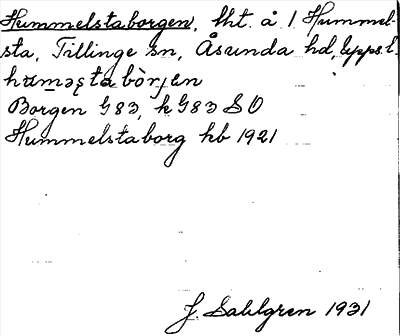 Hummelstaborgen, lht. å 1 Hummel-
sta, Tillinge sn, Åsunda hd, Upps. l.
hɯməʂtabòrjɛn
Borgen G83, k G83 SO
Hummelstaborg kb 1921
J. Sahlgren 1931